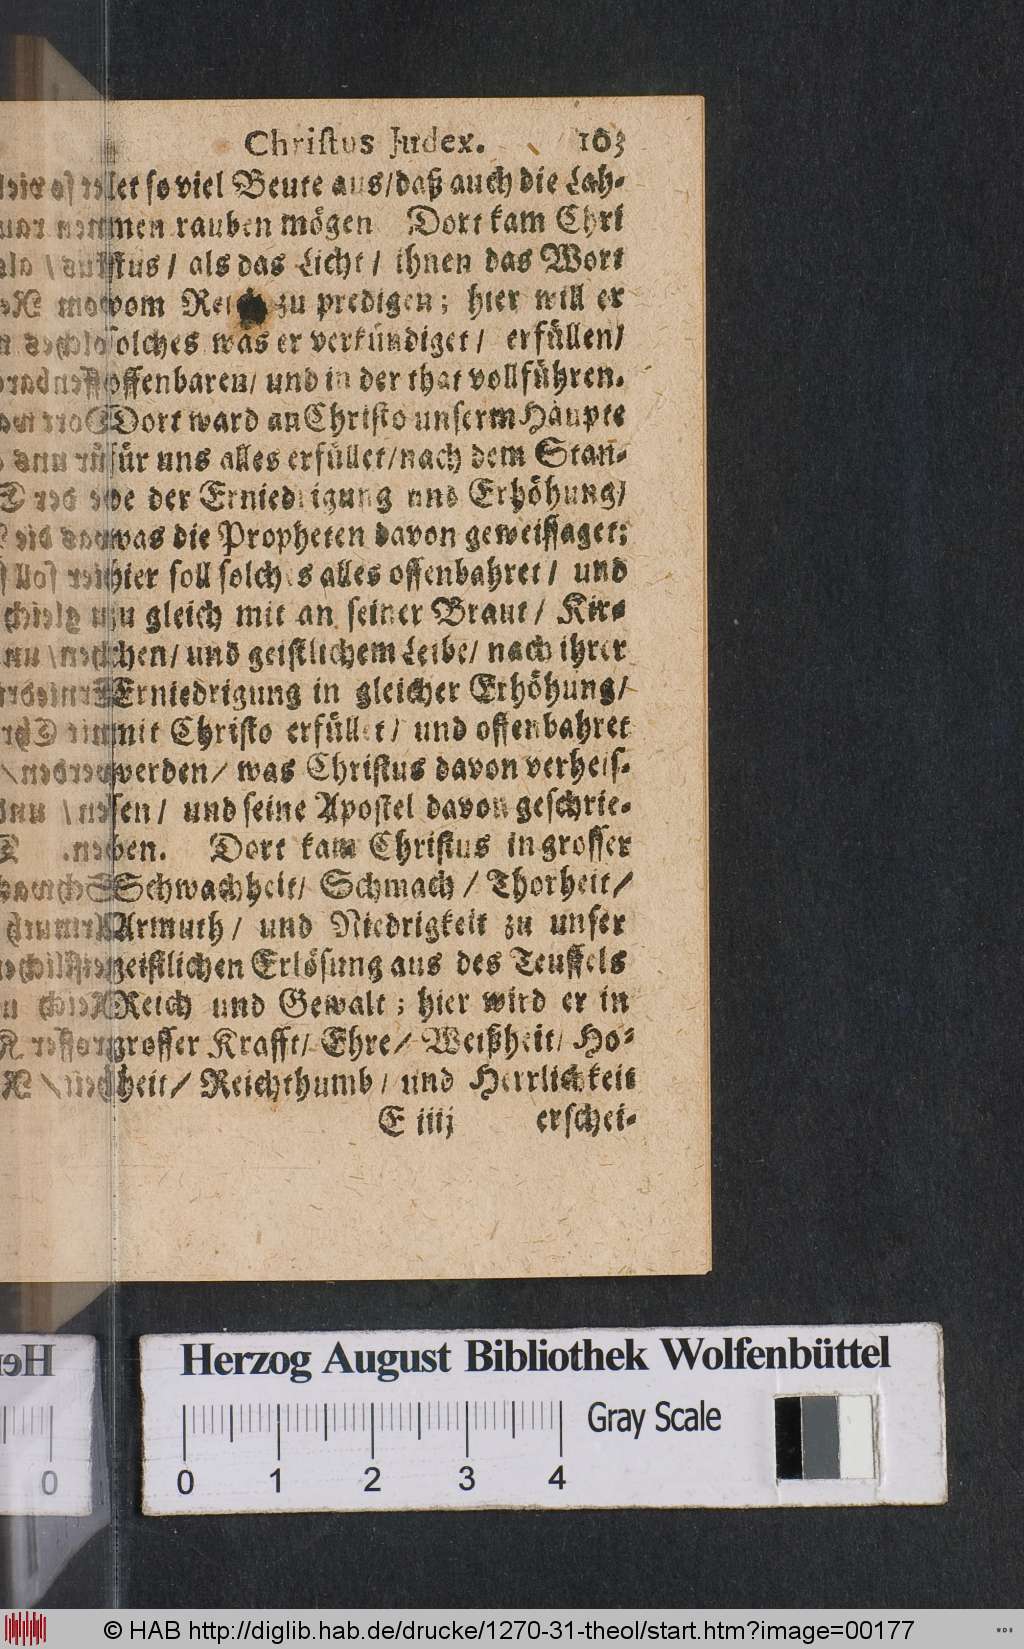 Chriſtus Judex. 103
let ſo viel Beute aus/daß auch die Lah-
men rauben mögen Dort kam Chri
ſtus / als das Licht / ihnen das Wort
vom Reich zu predigen; hier will er
ſolches was er verkündiget / erfüllen/
offenbaren/ und in der that vollführen.
Dort ward an Chriſto unſerm Häupte
für uns alles erfüllet/nach dem Stan-
de der Erniedrigung und Erhöhung/
was die Propheten davon geweiſſaget;
hier ſoll ſolches alles offenbahret / und
zu gleich mit an ſeiner Braut / Kir-
chen/ und geiſtlichem Leibe/ nach ihrer
Erniedrigung in gleicher Erhöhung/
mit Chriſto erfüllet / und offenbahret
werden/ was Chriſtus davon verheiſ-
ſen / und ſeine Apoſtel davon geſchrie-
ben. Dort kam Chriſtus in groſſer
Schwachheit/ Schmach / Thorheit/
Armuth / und Niedrigkeit zu unſer
geiſtlichen Erlöſung aus des Teuffels
Reich und Gewalt; hier wird er in
groſſer Krafft/ Ehre/ Weißheit/ Ho-
heit/ Reichthumb / und Herrlichkeit
E iiij erſchei-
Herzog August Bibliothek Wolfenbüttel
Gray Scale
0 1 2 3 4
© HAB http://diglib.hab.de/drucke/1270-31-theol/start.htm?image=00177